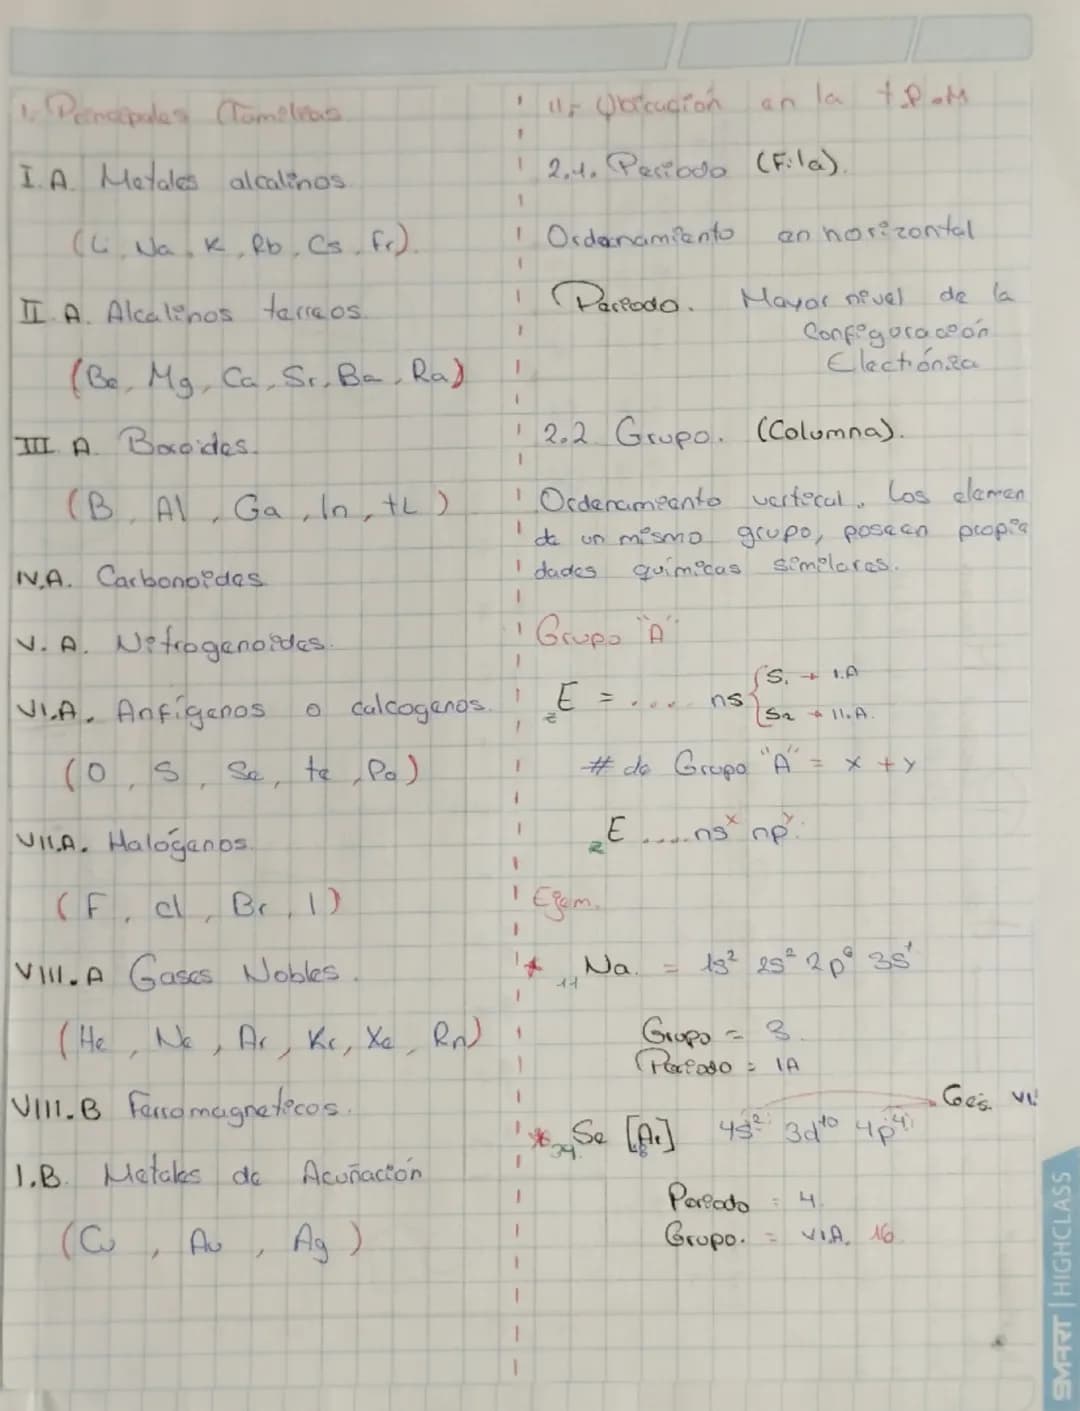 1. Principales (Familias)
I.A. Metales alcalinos
(Li, Na, K, Rb, Cs, Fr).
II.A. Alcalinos terreos.
(Be, Mg, Ca, Sr, Ba, Ra)
III.A. Boroides.
(B, Al, Ga, In, tL)
IV.A. Carbonoides
V.A. Nitrogenoides.
VI.A. Anfígenos o calcogenos.
(O, S, Se, te, Po)
VII.A. Halógenos.
(F, cl, Br, I)
VIII.A Gases Nobles.
(He, Ne, Ar, Kr, Xe, Rn)
VIII.B Ferromagneticos.
I.B. Metales de Acuñación
(Cu, Au, Ag)
II.- Ubicación en la t.P.M
2.1. Periodo (Fila).
Ordenamiento en horizontal
Periodo. Mayor nivel de la
Configuración
Electrónica
2.2 Grupo. (Columna).
Ordenamiento vertical. Los elemen
de un mismo grupo, poseen propie
dades químicas similares.
Grupo "A"
zE = .... ns { S1 → I.A
S2 → II.A.
# de Grupo "A" = x + y
zE ....nsˣ npʸ.
Ejem.
* 11Na. = 1s² 2s² 2p⁶ 3s¹
Grupo = 3.
Periodo = IA
* 34Se [18Ar] 4s² 3d¹⁰ 4p⁴
Periodo = 4.
Grupo. = VI.A. 16
SMART | HIGHCLASS